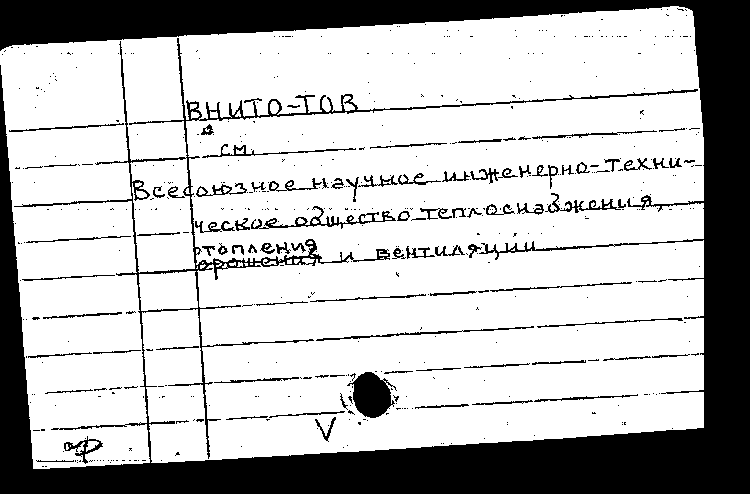 ВНИТО-ТОВ
см.
Всесоюзное научное инженерно-техни-
ческое общество теплоснабжения,
отопления
орошения и вентиляции
V